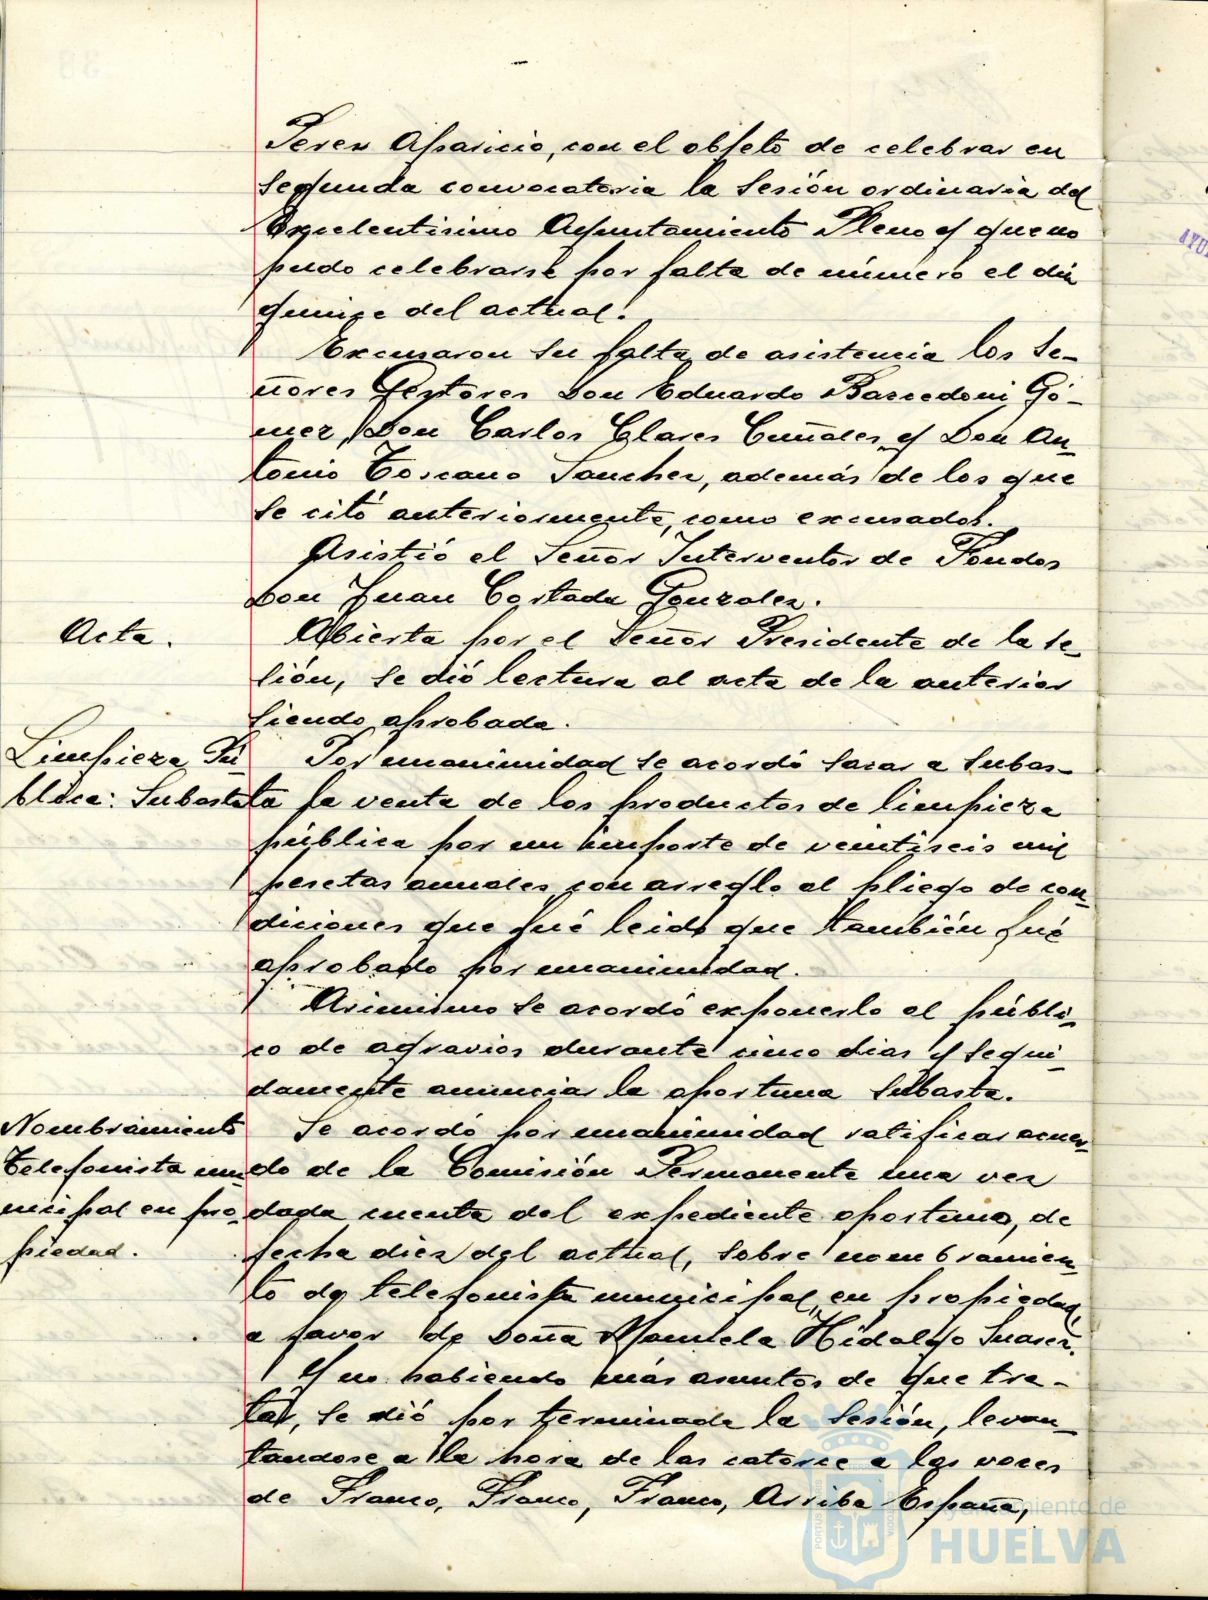 Perez Aparicio, con el objeto de celebrar en
segunda convocatoria la Sesión ordinaria del
Excelentisimo Ayuntamiento Pleno y que no
pudo celebrarse por falta de número el dia
quince del actual.
Excusaron su falta de asistencia los Se-
ñores Gestores Don Eduardo Gó-
mez, Don Carlos Clares y Don An-
tonio Toscano Sanchez, además de los que
se citó anteriormente, como excusados.
Asistió el Señor Interventor de Fondos
Don Juan Cortada Gonzalez.
Acta.
Abierta por el Señor Presidente de la se-
sión, se dió lectura al acta de la anterior
siendo aprobada.
Limpieza Pú-
blica: Subasta
Por unanimidad se acordó sacar a Subas-
ta la venta de los productos de limpieza
pública por un importe de veintiseis mil
pesetas anuales con arreglo al pliego de con-
diciones que fué leido que también fué
aprobado por unanimidad.
Asimismo se acordó exponerlo al públi-
co de agravios durante cinco dias y segui-
damente anunciar la oportuna Subasta.
Nombramiento
telefonista mu-
nicipal en pro-
piedad.
Se acordó por unanimidad ratificar acuer-
do de la Comisión Permanente una vez
dada cuenta del expediente oportuno, de
fecha diez del actual, sobre nombramien-
to de telefonista municipal, en propiedad
a favor de Doña Manuela Hidalgo Suarez.
Y no habiendo más asuntos de que tra-
tar, se dió por terminada la Sesión, levan-
tandose a la hora de las catorce a las voces
de Franco, Franco, Franco, Arriba España,
Ayuntamiento de
HUELVA